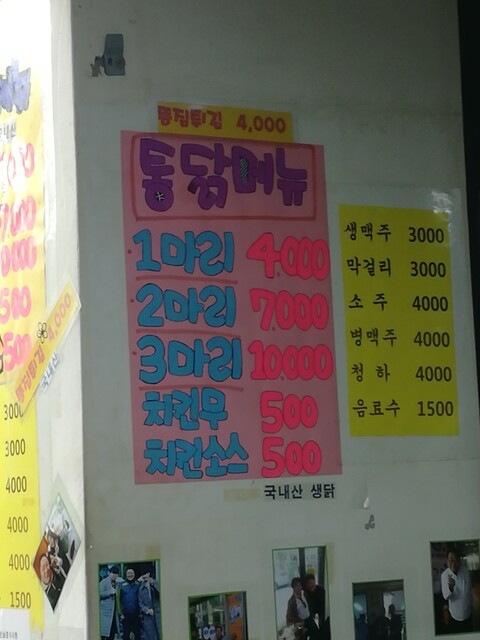 똥집튀김 4,000
통닭메뉴
1마리 4.000
2마리 7.000
3마리 10.000
치킨무 500
치킨소스 500
국내산 생닭
생맥주 3000
막걸리 3000
소주 4000
병맥주 4000
청하 4000
음료수 1500
4,000
국내산
500
500
3000
3000
4000
4000
4000
1500